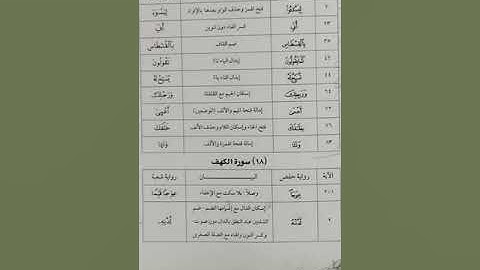 ٧ لِيَسُـۥٓـُٔوا۟ فتح الهمز وحذف الواو بعدها بالإفراد لِيَسُوٓءَ
٢٣ أُفٍّ كسر الفاء دون تنوين أُفِّ
٣٥ بِالْقِسْطَاسِ ضم القاف بِالْقُسْطَاسِ
٤٢ كَمَا يَقُولُونَ إبدال الياء تاءً تَقُولُونَ
٤٤ تُسَبِّحُ لَهُ إبدال التاء ياءً يُسَبِّحُ لَهُ
٦٤ وَرَجِلِكَ إسكان الجيم مع القلقلة وَرَجْلِكَ
٧٢ أَعْمَىٰ إمالة فتحة الميم والألف (الموضعين) أَعْمَىٰ
٧٦ خِلَافَكَ فتح الخاء وإسكان اللام وحذف الألف خَلْفَكَ
٨٣ وَنَـَٔا إمالة فتحة الهمزة والألف وَنَـَٔا
(١٨) سورة الكهف
الآية رواية حفص البيـــان رواية شعبة
١-٢ عِوَجَا وصلاً بلا سكت مع الإخفاء عِوَجًا قَيِّمًا
٢ لَدُنْهُ إسكان الدال مع إشمامها الضم - ضم
الشفتين عند النطق بالدال دون صوت -
وكسر النون والهاء مع الصلة الصغرى لَدْنِهِۦ